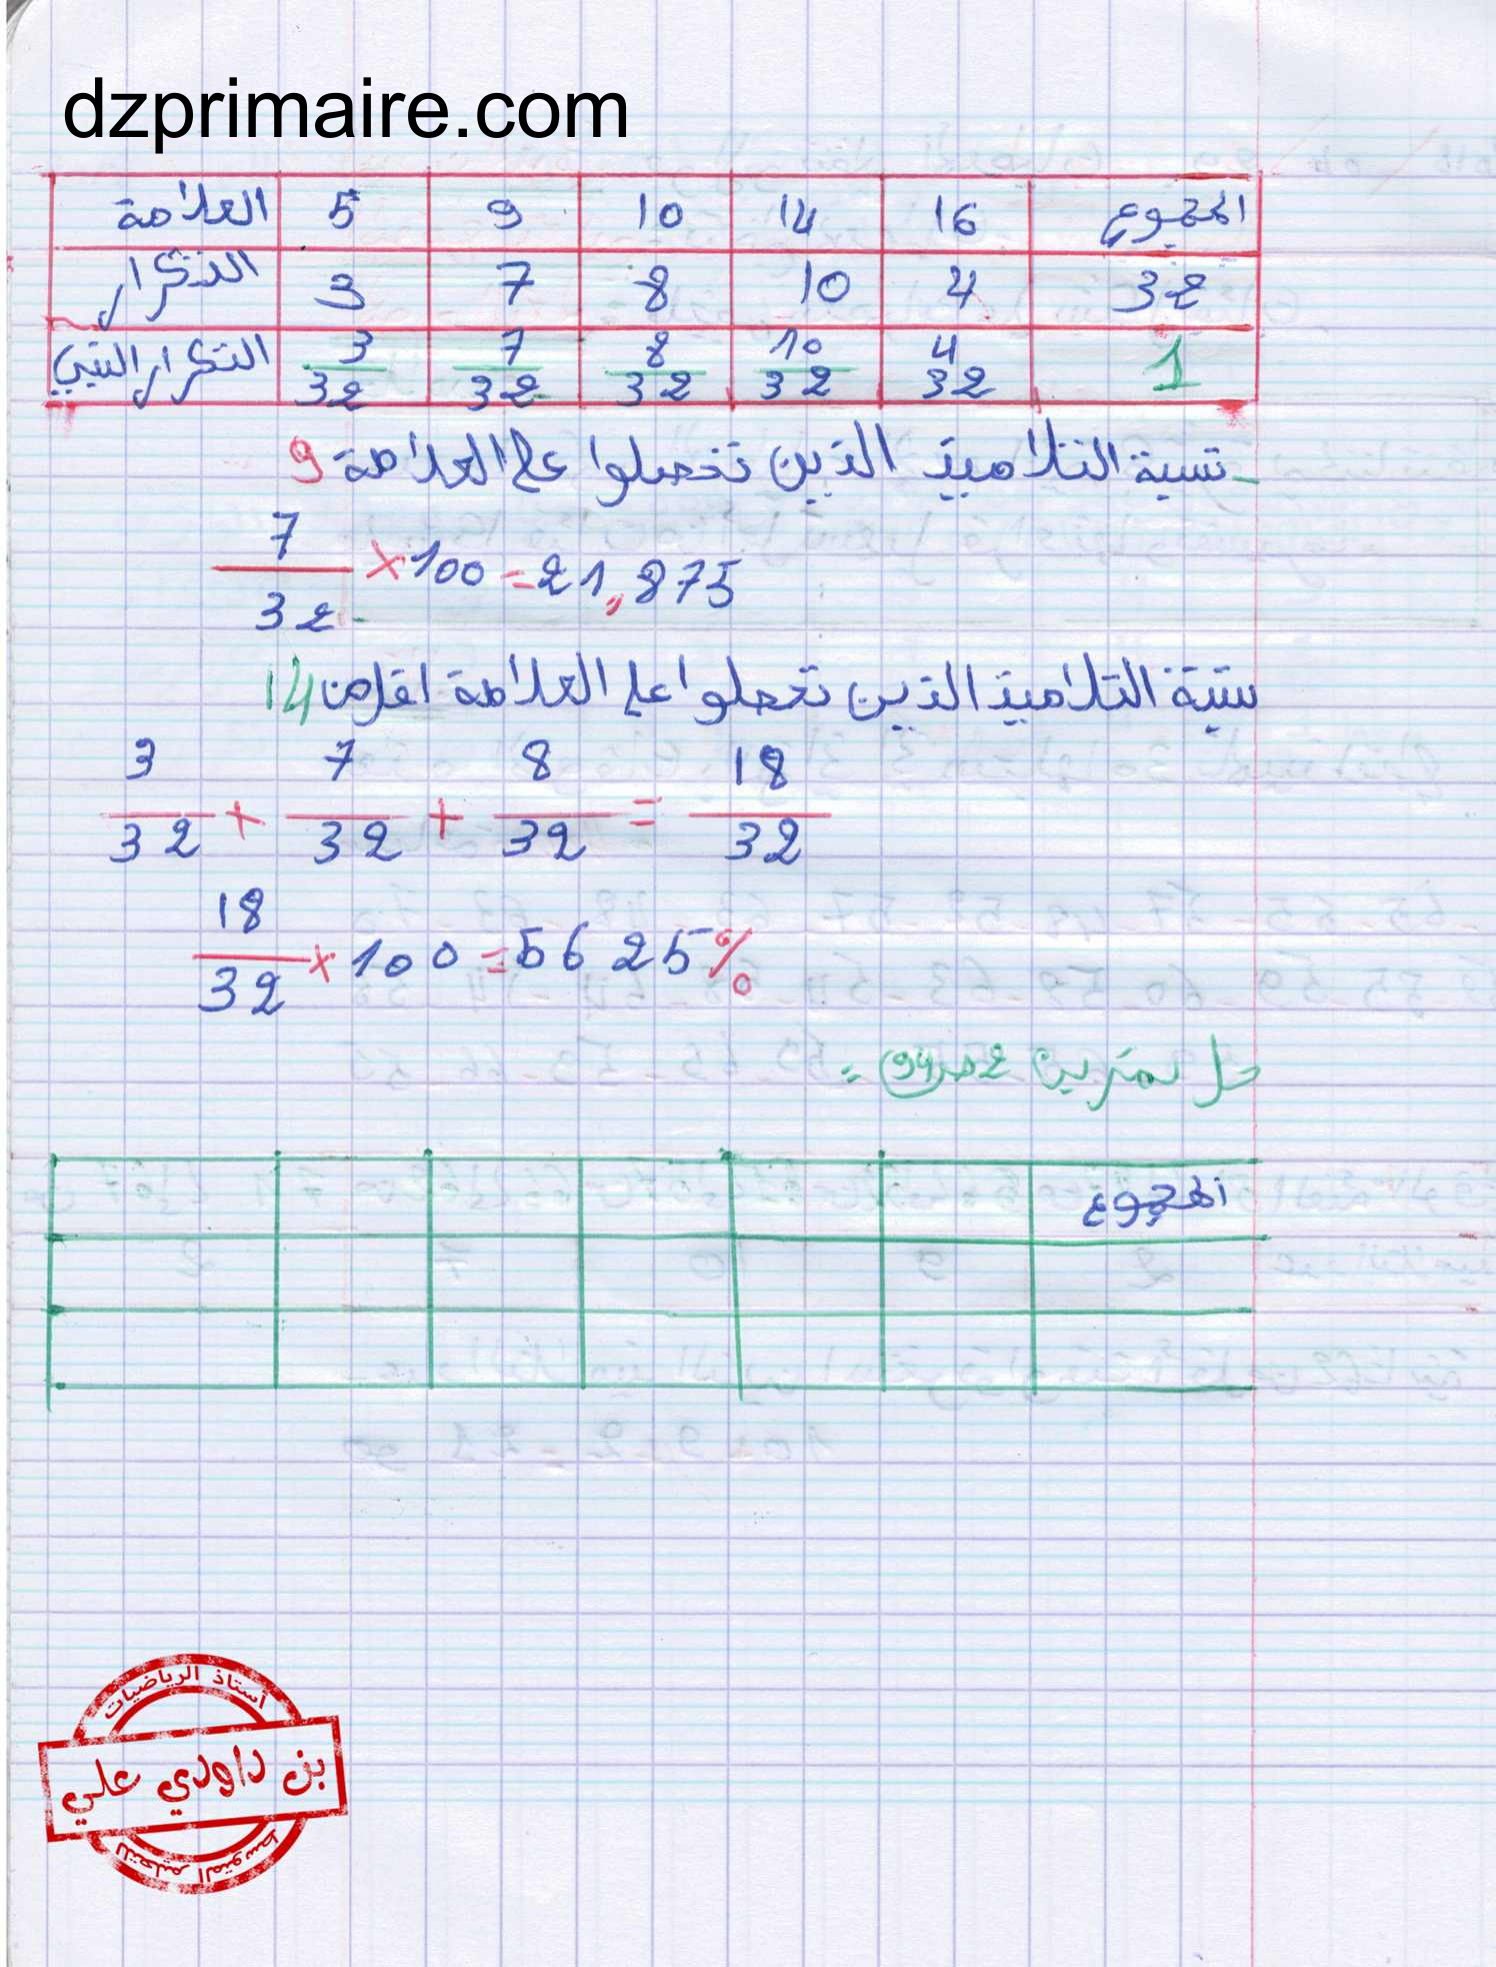 dzprimaire.com
العلامة 5 9 10 14 16 المجموع
التكرار 3 7 8 10 4 32
التكرار النسبي 3/32 7/32 8/32 10/32 4/32 1
نسبة التلاميذ الذين تحصلوا على العلامة 9
7/32 × 100 = 21,875
نسبة التلاميذ الذين تحصلوا على العلامة اقل من 14
3/32 + 7/32 + 8/32 = 18/32
18/32 × 100 = 56 25 %
حل تمرين 2 ص 94 =
المجموع
أستاذ الرياضيات
بن داودي علي
للتعليم المتوسط